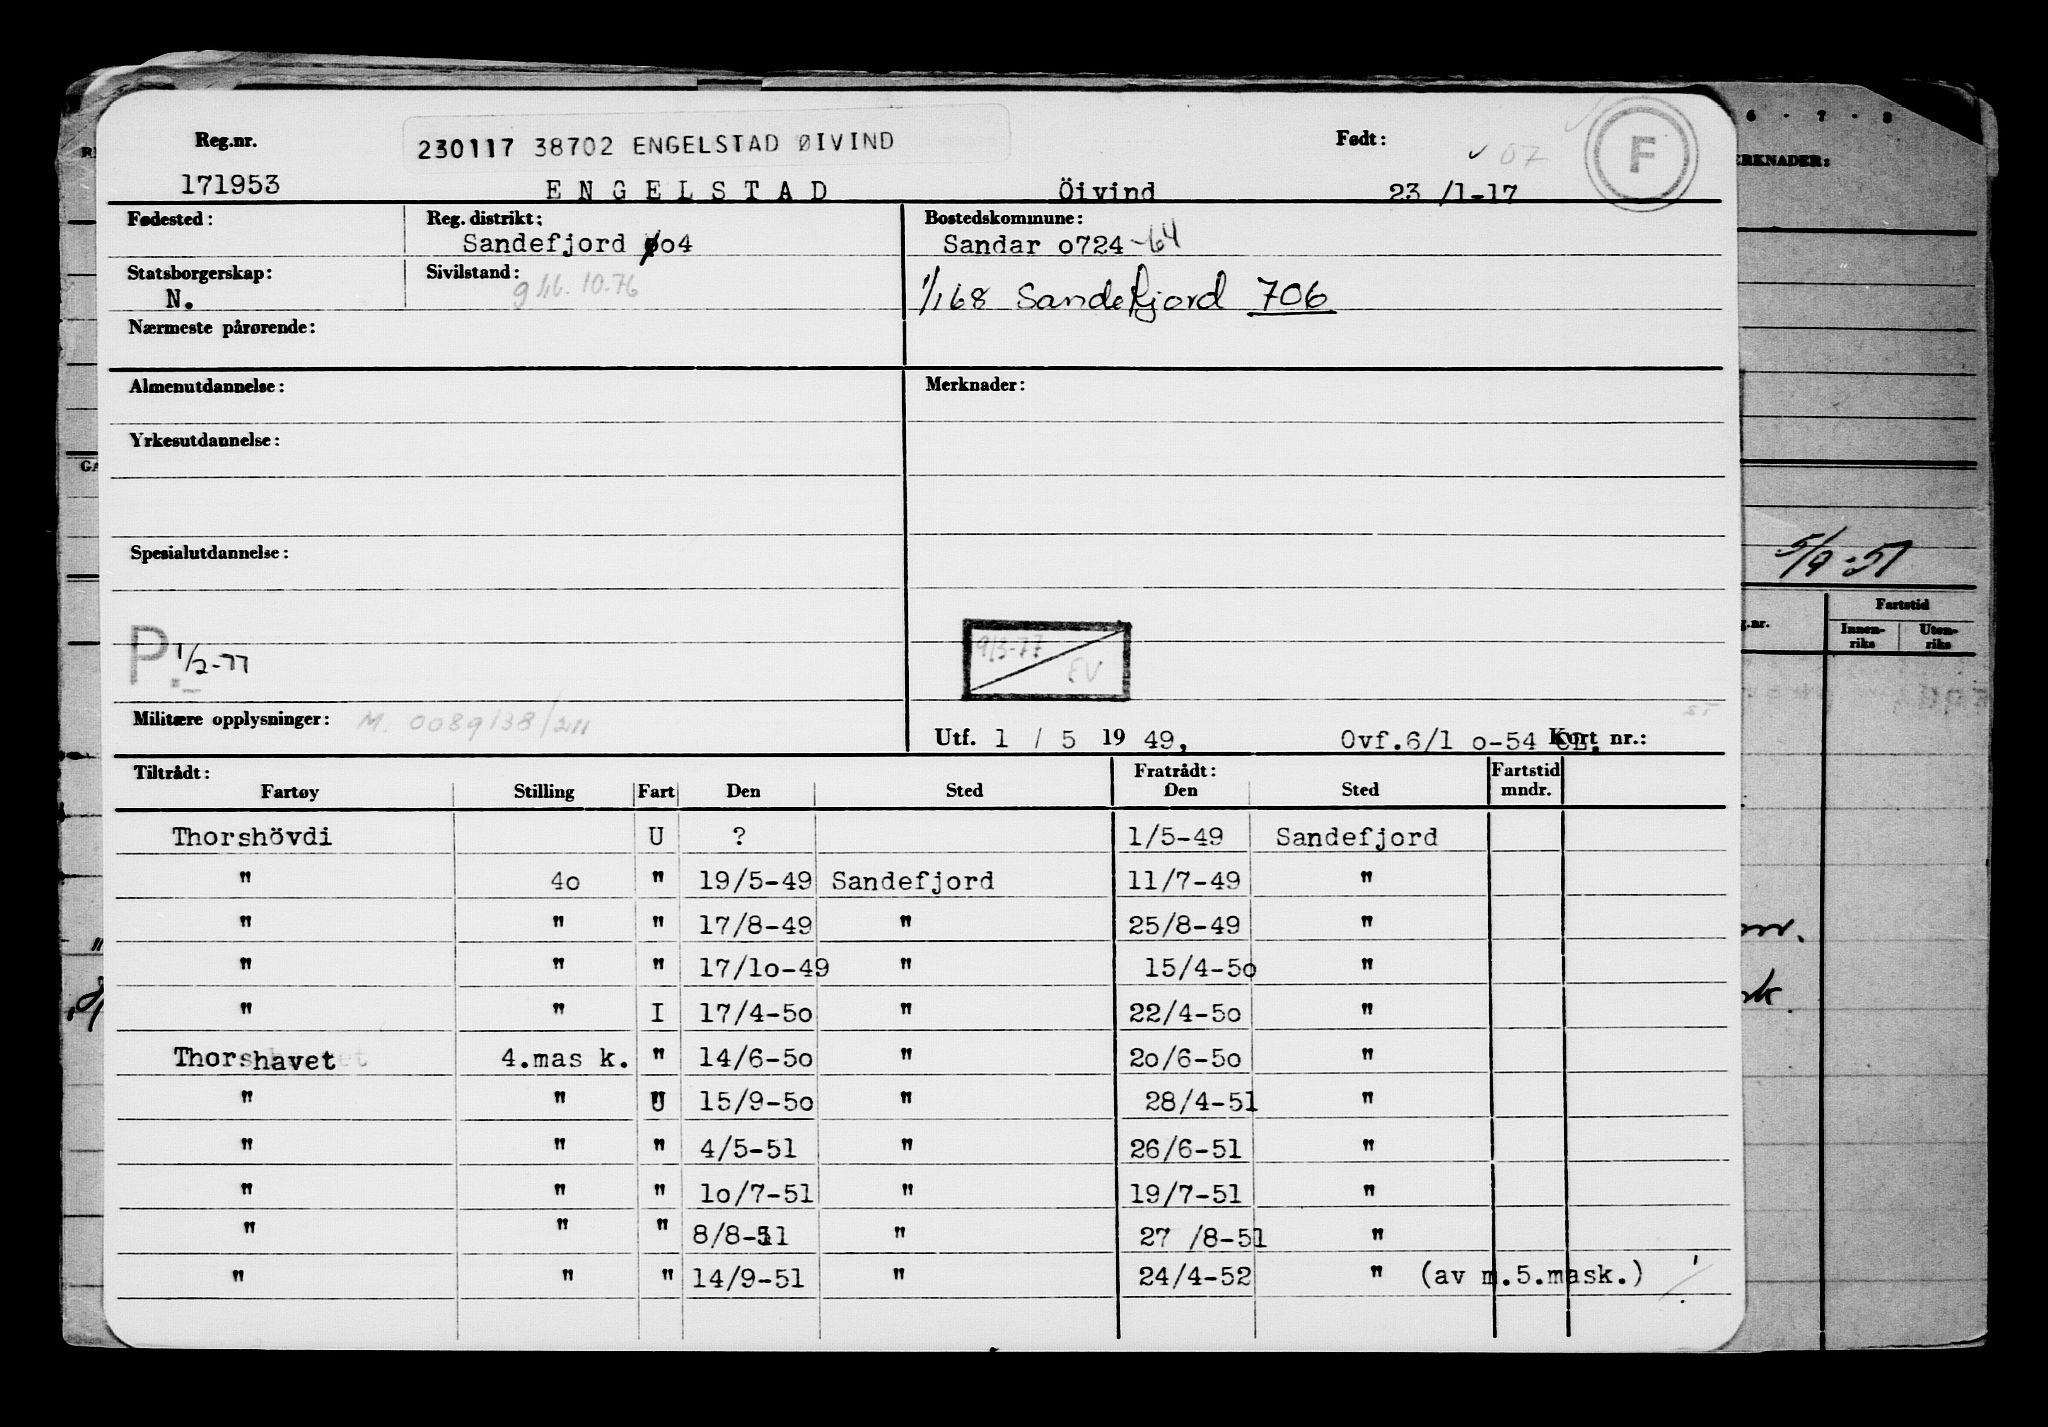 Reg.nr. 230117 38702 ENGELSTAD ØIVIND Født: 07 F
171953 E N G E L S T A D Öivind 23 /1-17
Fødested: Reg. distrikt: Bostedskommune:
Sandefjord o4 Sandar o724 -64
Statsborgerskap: Sivilstand:
N. g 16.10.76 1/1 68 Sandefjord 706
Nærmeste pårørende:
Almenutdannelse: Merknader:
Yrkesutdannelse:
Spesialutdannelse:
P. 1/2-77 9/3-77 EV
Militære opplysninger: M. 0089/38/211
Utf. 1 / 5 19 49, Ovf.6/1 o-54 Kort nr.:
Tiltrådt: Fratrådt: Fartstid
Fartøy Stilling Fart Den Sted Den Sted mndr.
Thorshövdi U ? 1/5-49 Sandefjord
" 4o " 19/5-49 Sandefjord 11/7-49 "
" " " 17/8-49 " 25/8-49 "
" " " 17/1o-49 " 15/4-5o "
" " I 17/4-5o " 22/4-5o "
Thorshavet 4.mas k. " 14/6-5o " 2o/6-5o "
" " U 15/9-5o " 28/4-51 "
" " " 4/5-51 " 26/6-51 "
" " " 1o/7-51 " 19/7-51 "
" " " 8/8-51 " 27 /8-51 "
" " " 14/9-51 " 24/4-52 " (av m.5.mask.)
6 - 7 - 8
RKNADER:
5/9-51
Fartstid
Innen-
riks
Uten-
riks